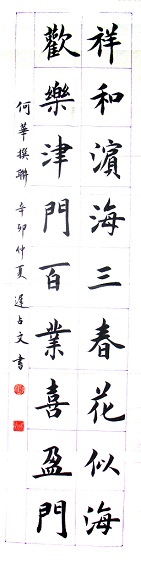 祥和濱海三春花似海
歡樂津門百業喜盈門
何華撰聯 辛卯仲夏 逯占文書